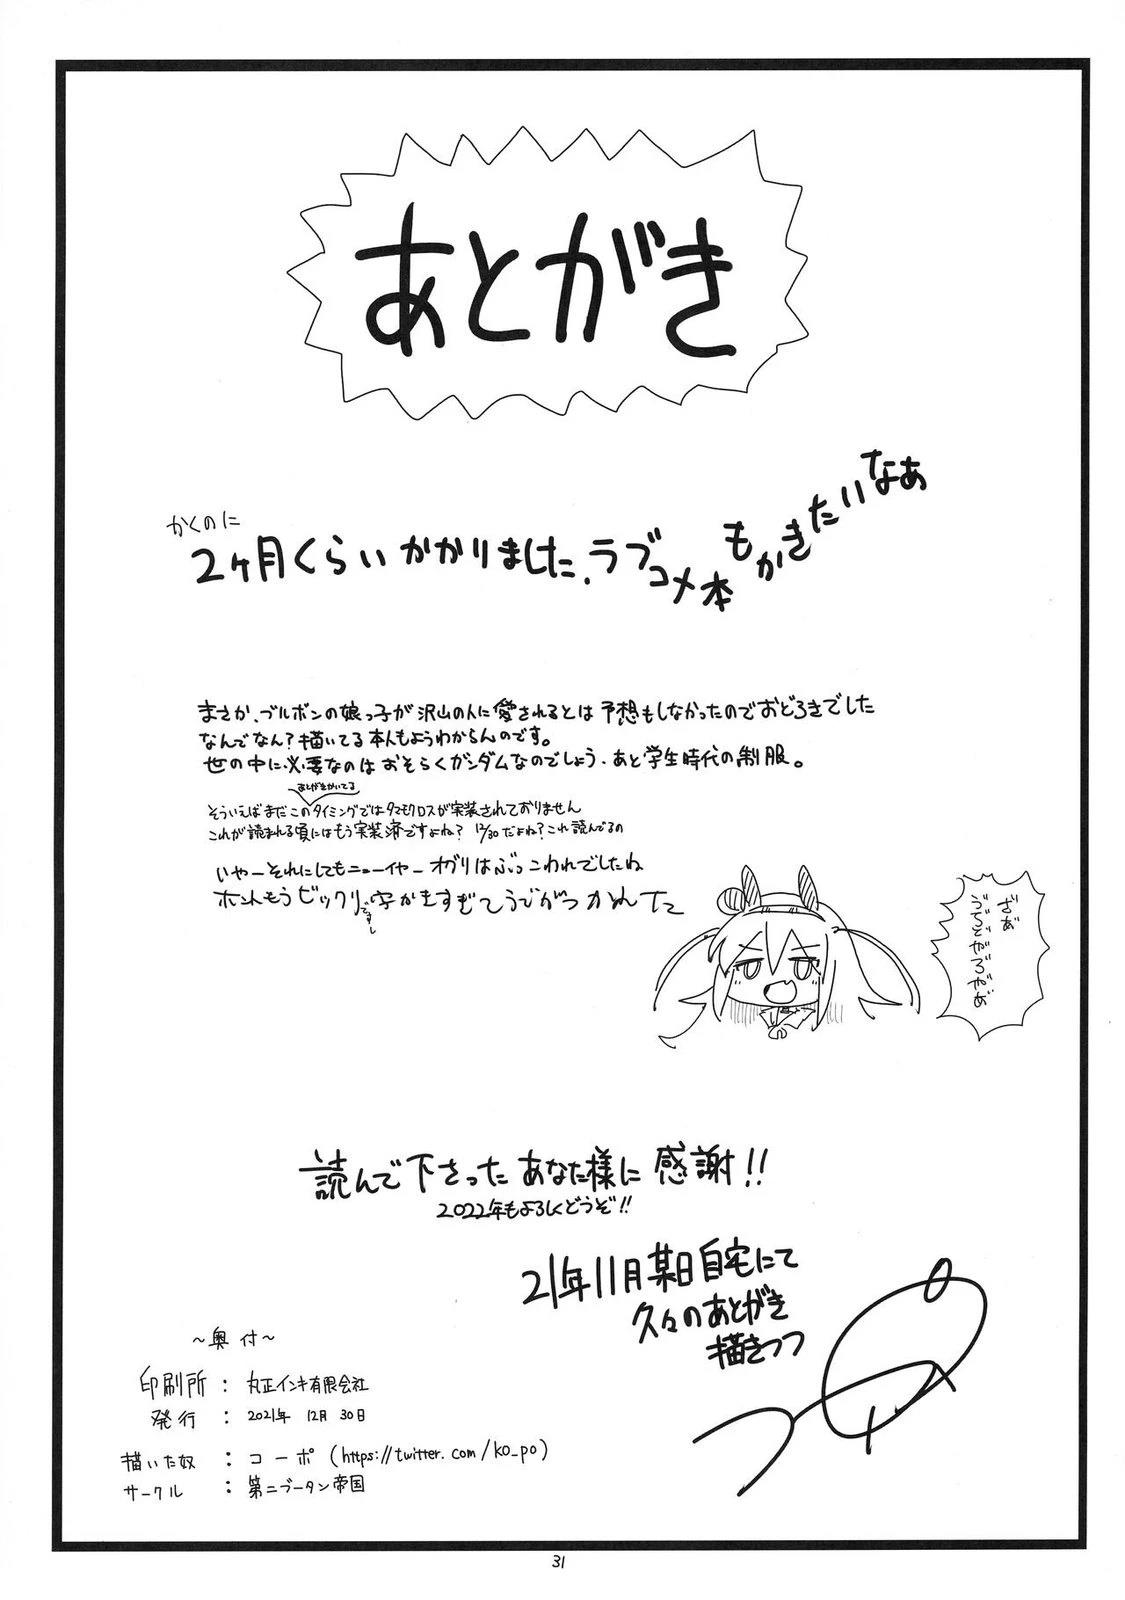 あとがき
かくのに
2ヶ月くらいかかりました、ラブコメ本もかきたいなぁ
まさか、ブルボンの娘っ子が沢山の人に愛されるとは予想もしなかったのでおどろきでした
なんでなん?描いてる本人もようわからんのです。
世の中に必要なのはおそらくガンダムなのでしょう、あと学生時代の制服。
あとがきかいてる
そういえばまだこのタイミングではタマモクロスが実装されておりません
これが読まれる頃にはもう実装済ですよね? 12/30だよね?これ読んでるの
いやーそれにしてもニューイヤーオグリはぶっこわれでしたね
ホントもうビックリですし字かきすぎてうでがつかれた
読んで下さったあなた様に感謝!!
2022年もよろしくどうぞ!!
21年11月某日自宅にて
久々のあとがき
描きつつ
~奥付~
印刷所 : 丸正インキ有限会社
発行 : 2021年 12月 30日
描いた奴 : コーポ (https://twitter.com/ko_po)
サークル : 第二ブータン帝国
31